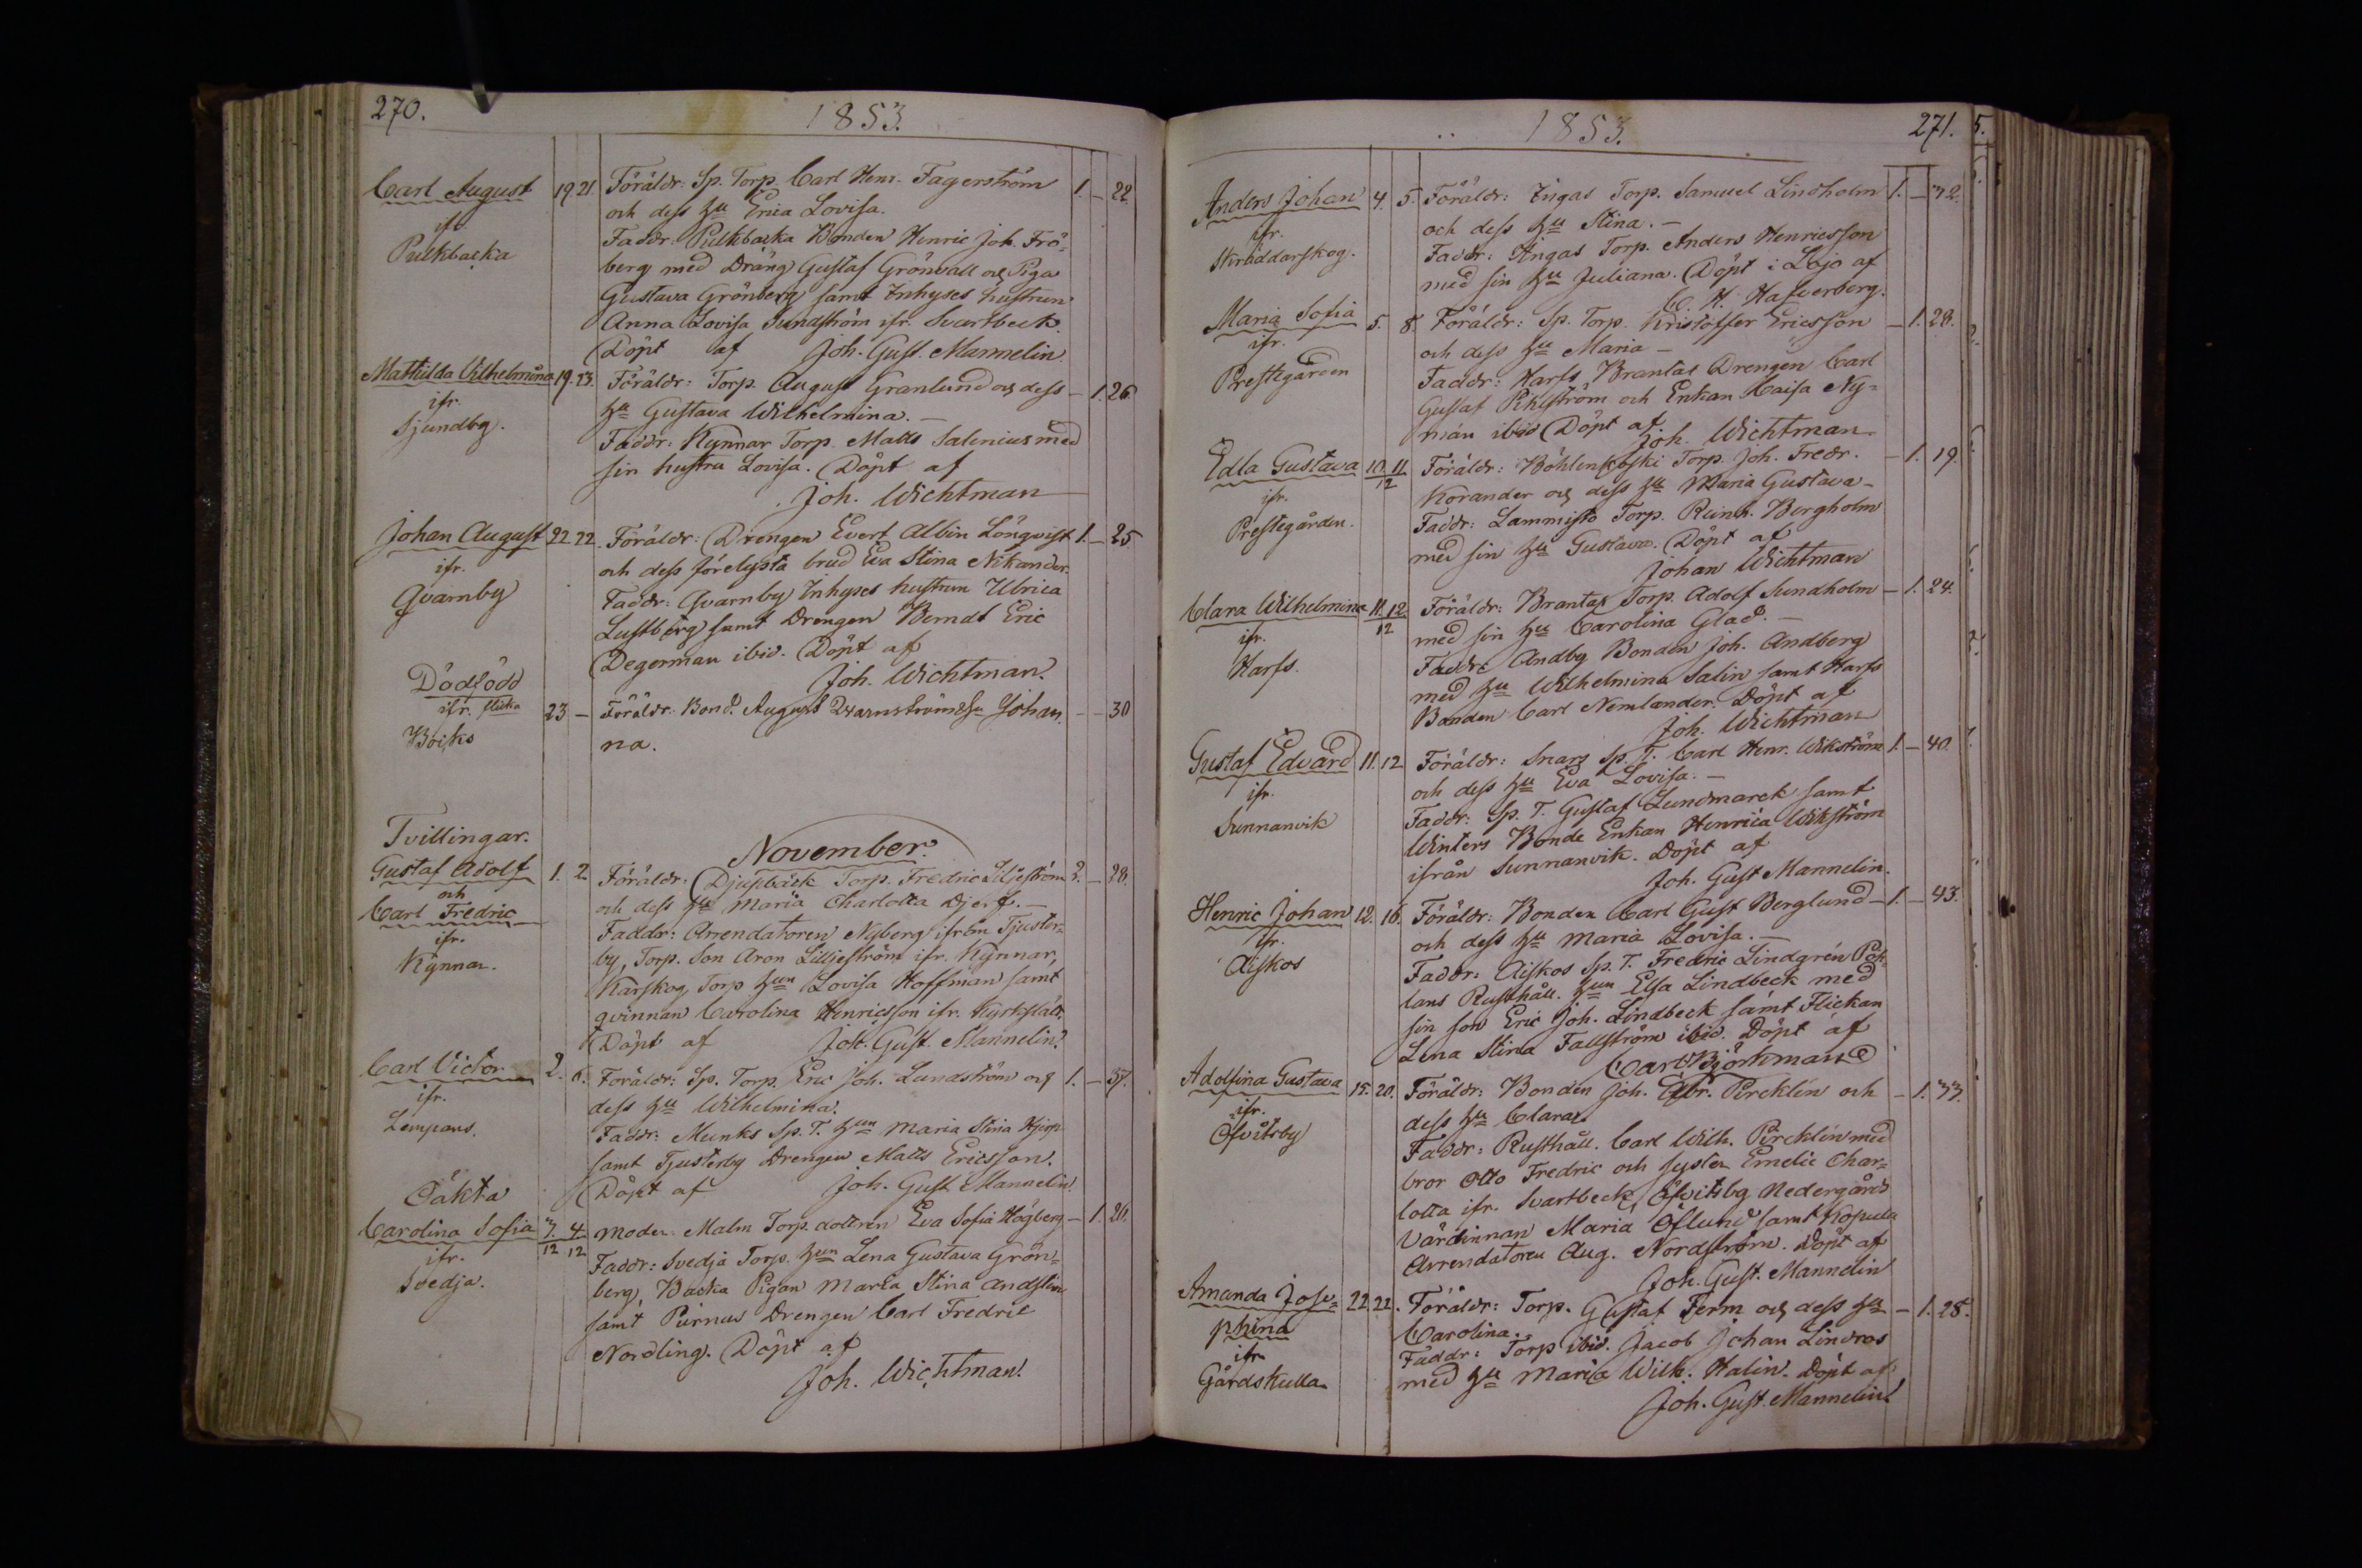 270.
1853.
Carl August 19 21. Föräldr: Sp. Torp. Carl Henr. Fagerström 1. – 22.
ifr. och dess hu Erica Lovisa.
Pulkbacka Faddr: Pulkbacka Bonden Henric Joh. Frö-
berg med Dräng Gustaf Grönvall och Piga
Gustava Grönberg samt Inhyses hustrun
Anna Lovisa Sundström ifr. Svartbeck.
Döpt af Joh. Gust. Mannelin.
Mathilda Vilhelmina 19. 23. Föräldr: Torp. August Granlund och dess – 1. 26.
ifr. hu Gustava Wilhelmina. –
Sjundby. Faddr: Kynnar Torp. Matts Salenius med
sin hustru Lovisa. Döpt af
Joh. Wichtman
Johan August 22 22. Föräldr: Drengen Evert Albin Lönqvist 1. – 25
ifr. och dess förelysta brud Eva Stina Nikander.
Qvarnby Faddr: Qvarnby Inhyses hustrun Ulrica
Lustberg samt Drengen Berndt Eric
Degerman ibid. Döpt af
Joh. Wichtman.
Dödfödd
ifr. flicka 23 – Föräldr. Bond. August Qvarnström & hu Johan – – 30
Böisks na.
November.
Tvillingar.
Gustaf Adolf 1. 2. Föräldr: Djupbäck Torp. Fredric Liljeström 2. – 28.
och och dess hu Maria Charlotta Djerf. –
Carl Fredric Faddr: Arrendatoren Nyberg ifrån Tjuster-
ifr. by, Torp. Son Aron Lilljeström ifr. Kynnar,
Kynnar. Karskog Torp hun Lovisa Hoffman samt
qvinnan Carolina Henricsson ifr. Kyrkslätt.
Döpt af Joh. Gust. Mannelin.
Carl Victor 2. 6. Föräldr: Sp. Torp. Eric Joh. Lundström och 1. – 37.
ifr. dess hu Wilhelmina.
Lempans. Faddr: Munks Sp. T. hun Maria Stina
samt Tjusterby Drengen Matts Ericsson.
Döpt af Joh. Gust Mannelin.
Oäkta
Carolina Sofia 3. 4. Moder: Malm Torp. dottren Eva Sofia Högberg – 1. 20.
12 12
ifr. Faddr: Svedja Torp. hun Lena Gustava Grön-
Svedja. berg, Backa Pigan Maria Stina Andstén
samt Purnus Drengen Carl Fredric
Nordling. Döpt af
Joh. Wichtman.
1853.
271.
5.
Anders Johan 4. 5. Föräldr: Ingas Torp. Samuel Lindholm 1. – 32.
ifr. och dess hu Stina. –
Skräddarskog. Faddr: Ingas Torp. Anders Henricsson
med sin hu Juliana. Döpt i Lojo af
C. H. Hafverberg.
Maria Sofia 5. 8. Föräldr: Sp. Torp. Kristoffer Ericsson – 1. 28.
ifr. och dess hu Maria –
Prestgården Faddr: Harfs Brantas Drengen Carl
Gustaf Pihlström och Enkan Caisa Ny-
man ibid Döpt af
Joh. Wichtman.
Edla Gustava 10. 11. Föräldr: Böhlenkoski Torp. Joh. Fredr. – 1. 19.
12
ifr. Korander och dess hu Maria Gustava –
Prestegården. Faddr: Lammisto Torp. Reinh. Bergholm
med sin hu Gustava. Döpt af
Johan Wichtman
Clara Wilhelmina 11. 12. Föräldr: Brantas Torp. Adolf Sundholm – 1. 24.
12
ifr. med sin hu Carolina Glad. –
Harfs. Faddr: Andby Bonden Joh. Andberg
med hu Wilhelmina Salin samt Harfs
Bonden Carl Nemlander. Döpt af
Joh. Wichtman
Gustaf Edvard 11. 12 Föräldr: Snarg Sp. T. Carl Henr. Wikström 1. – 40.
ifr. och dess hu Eva Lovisa. –
Sunnanvik Faddr: Sp. T. Gustaf Lundmarck samt
Winters Bonde Enkan Henrica Wikström
ifrån Sunnanvik. Döpt af
Joh. Gust Mannelin.
Henric Johan 12. 16. Föräldr: Bonden Carl Gust Berglund – 1. – 43.
ifr. och dess hu Maria Lovisa. –
Aiskos Faddr: Aiskos Sp. T. Fredric Lindgrén
lans Rusthåll. hun Elsa Lindbeck med
sin son Eric Joh. Lindbeck samt Flickan
Lena Stina Fallström ibid. Döpt af
Carl Björkman
Adolfina Gustava 15. 20. Föräldr: Bonden Joh. Gabr. Pircklén och – 1. 33.
ifr. dess hu Clara.
Ofvitsby Faddr: Rusthåll. Carl Wilh. Pircklén med
bror Otto Fredric och syster Emelie Char-
lotta ifr. Svartbeck, Ofvitsby Nedergårds
Värdinnan Maria Öflund samt Kopula
Arrendatoren Aug. Nordström. Döpt af
Joh. Gust. Mannelin
Amanda Jose- 22 22. Föräldr: Torp. Gustaf Ferm och dess hu – 1. 28.
phina Carolina.
ifr. Faddr: Torp ibid. Jacob Johan Lindros
Gårdskulla med hu Maria Wilh. Halin. Döpt af
Joh. Gust. Mannelin.